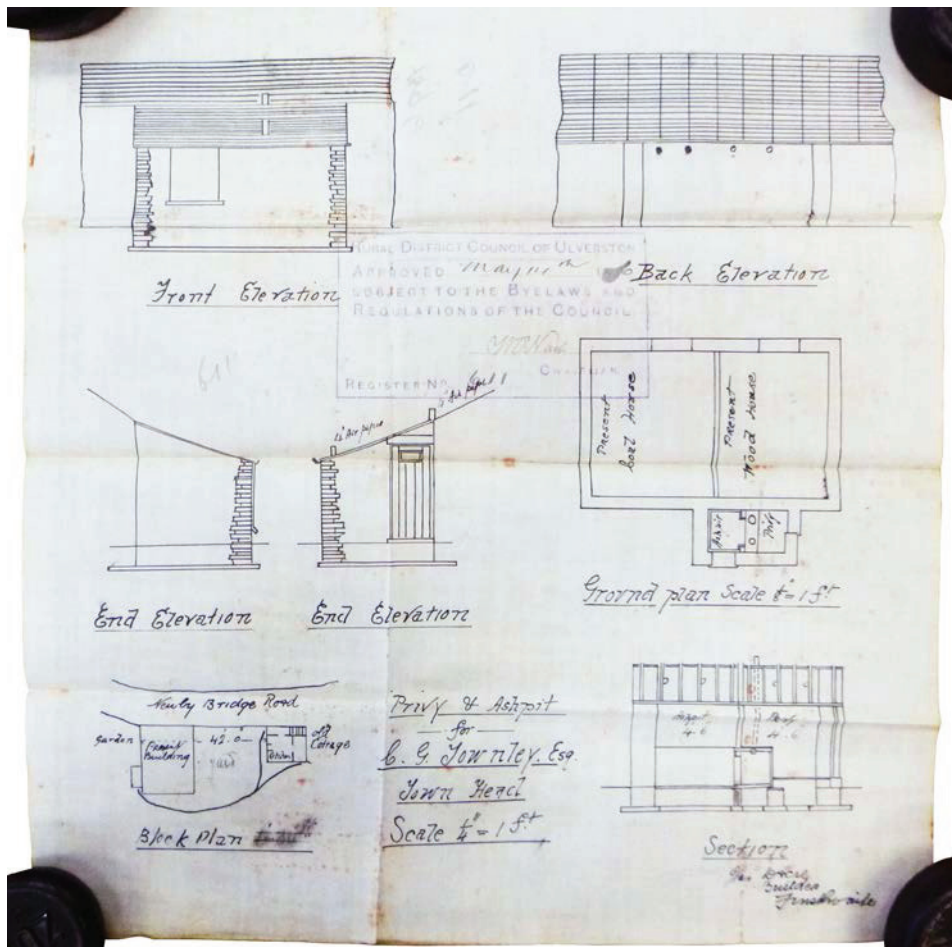 Front Elevation
Back Elevation
RURAL DISTRICT COUNCIL OF ULVERSTON
APPROVED May
SUBJECT TO THE BYELAWS AND
REGULATIONS OF THE COUNCIL
CHAIRMAN
REGISTER NO.
611
Air pipe
12" Air pipe
Present
Coal House
Present
Wood House
Ashpit
Privy
End Elevation
End Elevation
Ground plan Scale = 1 ft
Newby Bridge Road
Garden
Present
Building
42'.0"
Yard
Kitchen
old
Cottage
Block Plan
Privy & Ashpit
for
C. G. Townley. Esq.
Town Head
Scale 1/4" = 1 ft.
Ashpit
4'.6
Privy
4'.6
Section
Builder